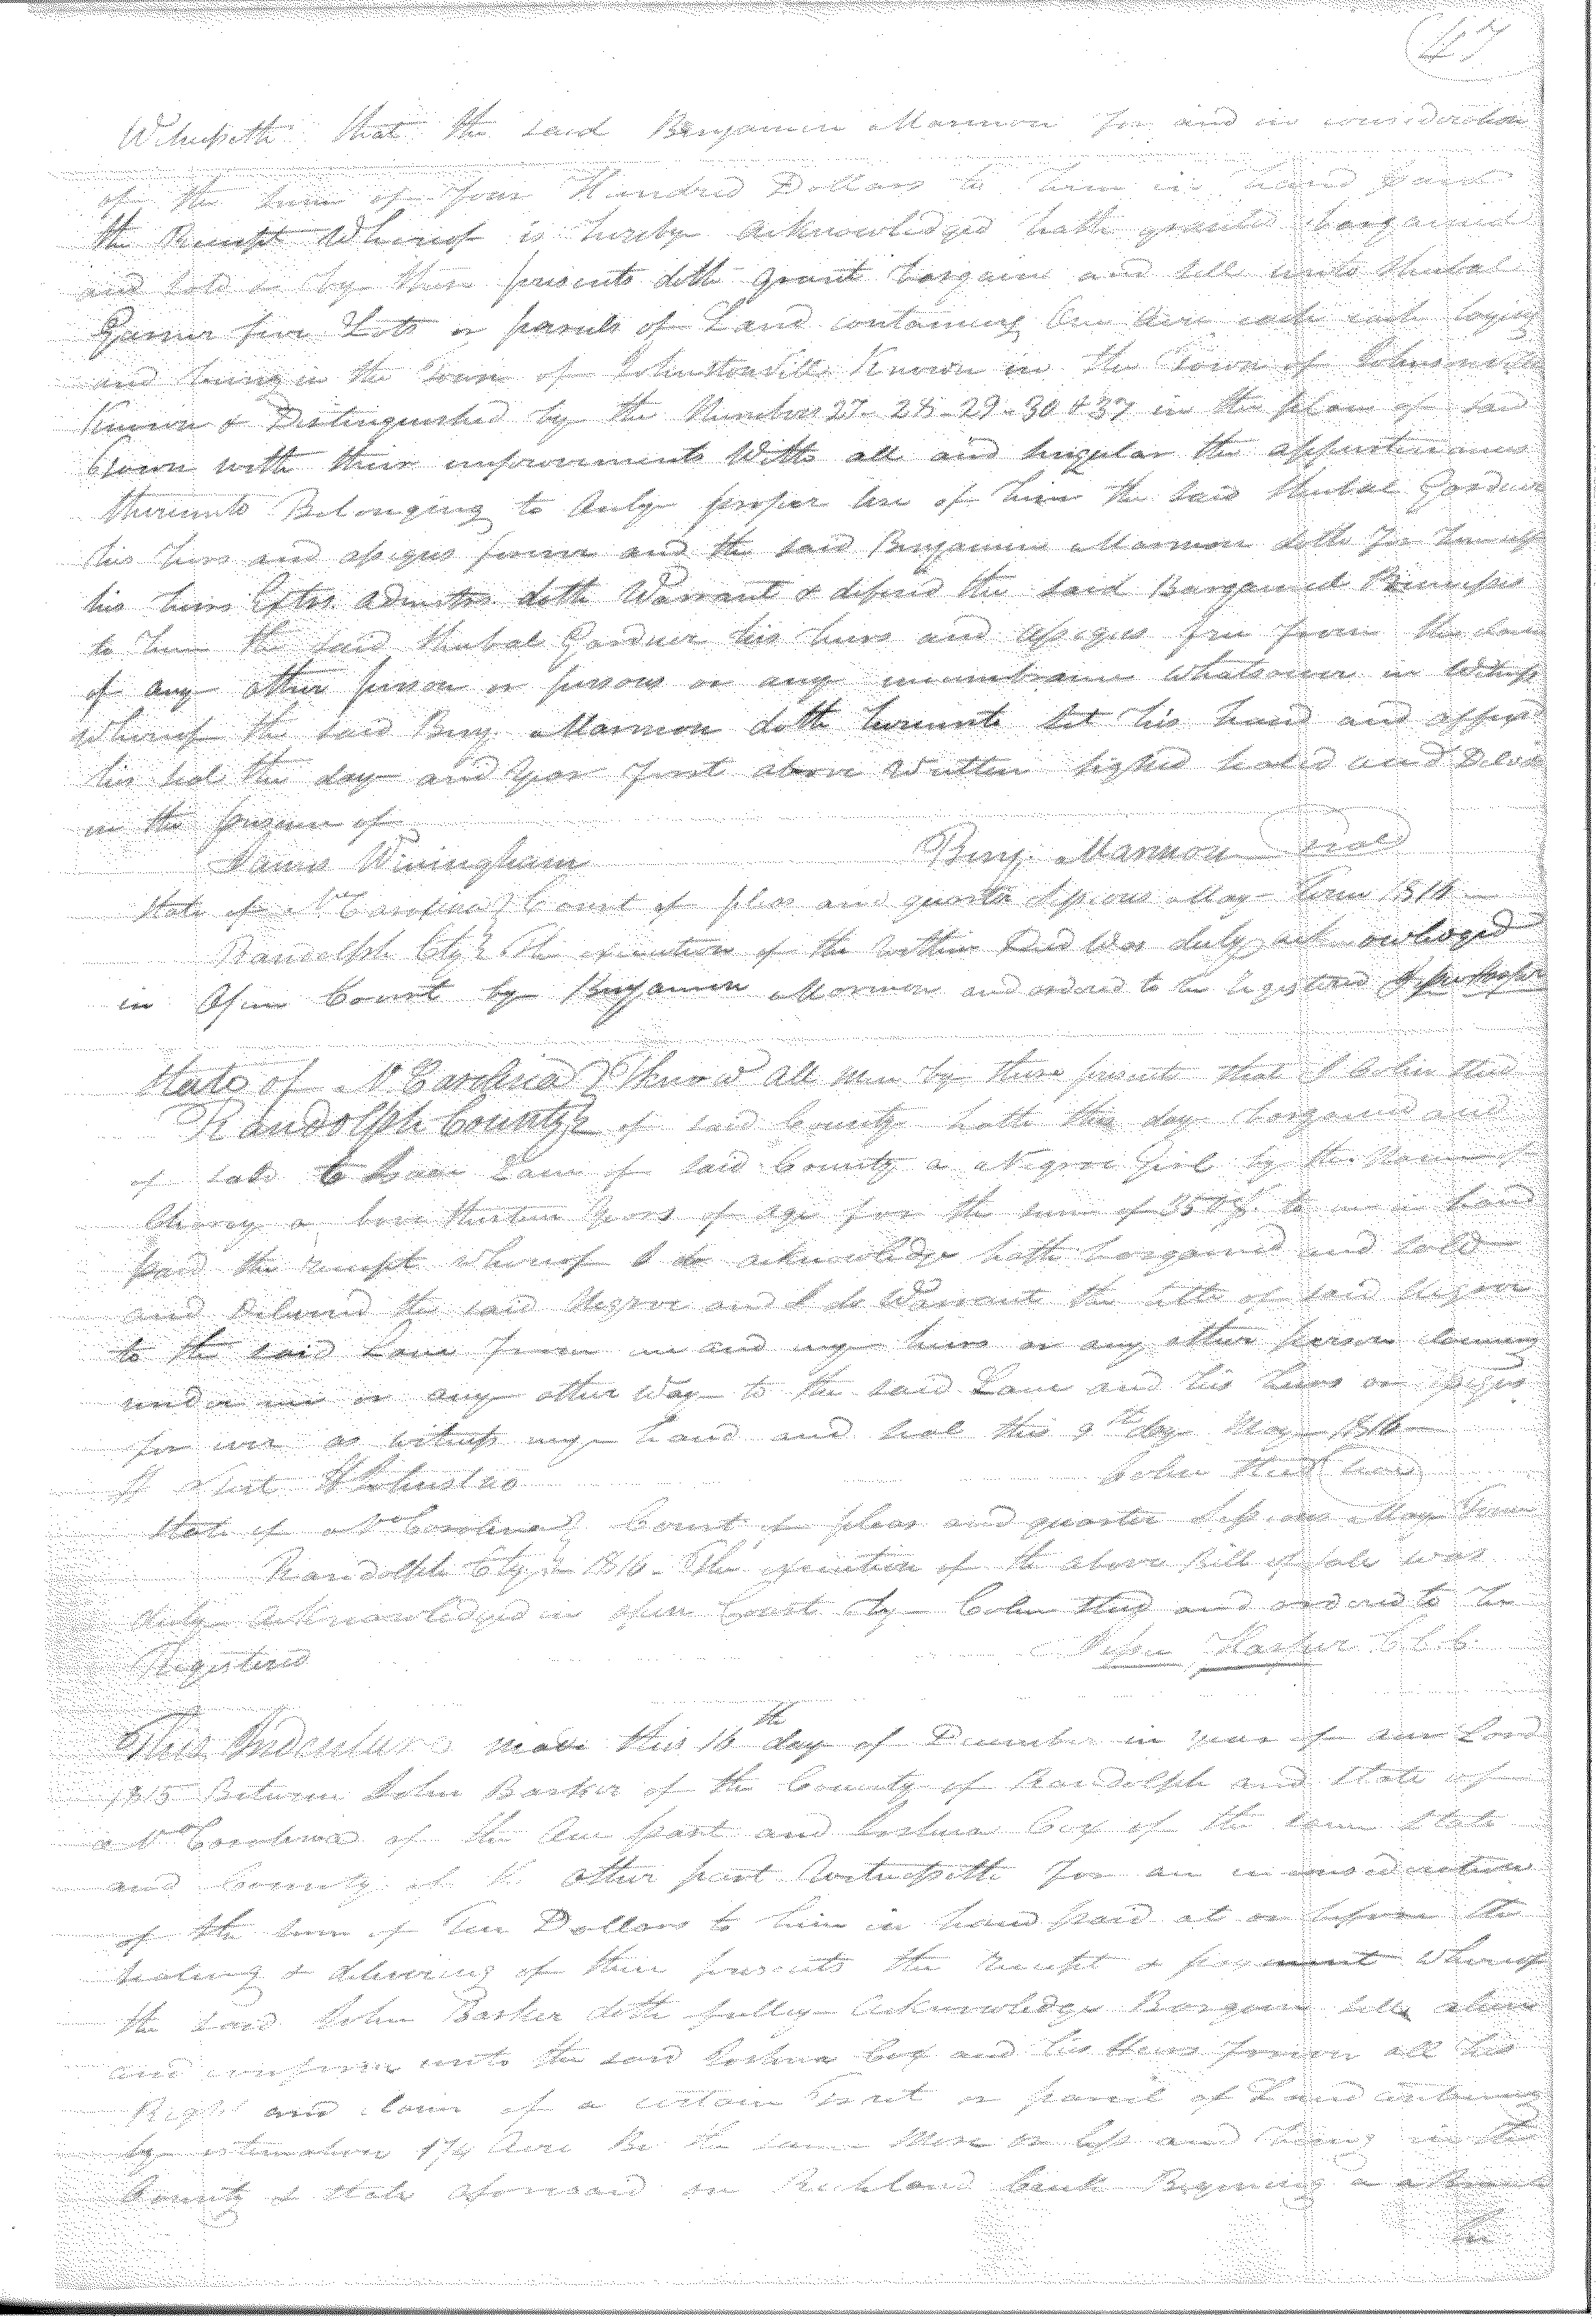 47
Witnesseth that the said Benjamin Marmon for and in consideration
of the sum of four Hundred Dollars to him in hand paid
the Receipt Whereof is hereby acknowledged hath granted bargained
and sold & by these presents doth grant bargain and sell unto Shubal
Garner five Lots or parsels of Land containing One Acre each each laying
and being in the Town of Johnstonville Known in the Town of Johnsonville
Known & Distinguished by the Numbers 27 - 28 - 29 - 30 & 37 in the plan of said
Town with their improvements With all and singular the appurtenances
thereunto Belonging to Only proper use of him the said Shubal Gardner
his heirs and assigns forever and the said Benjamin Marmon doth for himself
his heirs Extrs. Admstrs. doth Warrant & defend the said Bargained Premises
to him the said Shubal Gardner his heirs and assigns free from the claim
of any other person or persons or any incumbrance whatsoever in Witness
whereof the said Benj. Marmon doth hereunto set his hand and affixed
his seal the day and year first above Written signed sealed and Delvd
in the presence of
James Winingham Benj. Marmon seal
State of No Carolina } Court of pleas and quarter Sessions May Term 1816
Randolph Cty } The execution of the within Deed Was duly acknowledged
in Open Court by Benjamin Marmon and ordered to be registered Jesse Harper
State of N Carolina } Know all men by these presents that I Colin Steed
Randolph County } of said County hath this day bargained and
of sale to Isaac Lane of said County a Negroe Girl by the Name of
Cherry a bout thirteen years of age for the sum of 350 $. to me in hand
paid the receipt whereof I do acknowledge hath bargained and sold
and Delivered the said Negroe and I do Warrant the title of said Negroe
to the said Lane from me and my heirs or any other person claiming
under me or any other way to the said Lane and his heirs or assigns
for ever as witness my hand and seal this 9th day May 1816
Test Colin Steed seal
State of No Carolina } Court of pleas and quarter Sessions May Term
Randolph Cty } 1816 - The execution of the above Bill of sale was
duly acknowledged in open Court by Colin Steed and ordered to be
Registered Jesse Harper C.C.C.
This Indenture made this 16th day of December in year of our Lord
1815 Between John Barker of the County of Randolph and State of
No Carolina of the one part and Joshua Cox of the same State
and County of the other part Witnesseth for an in consideration
of the sum of Ten Dollars to him in hand paid at or before the
sealing & delivering of these presents the receipt & payment whereof
the said John Barker doth fully acknowledge Bargain sell alien
and confirm unto the said Joshua Cox and his Heirs forever all his
Right and claim of a certain Tract or parcel of Land containing
by estimation 1 3/4 Acre Be the same More or less and being in the
County & State aforesaid on Richland Creek Begining a